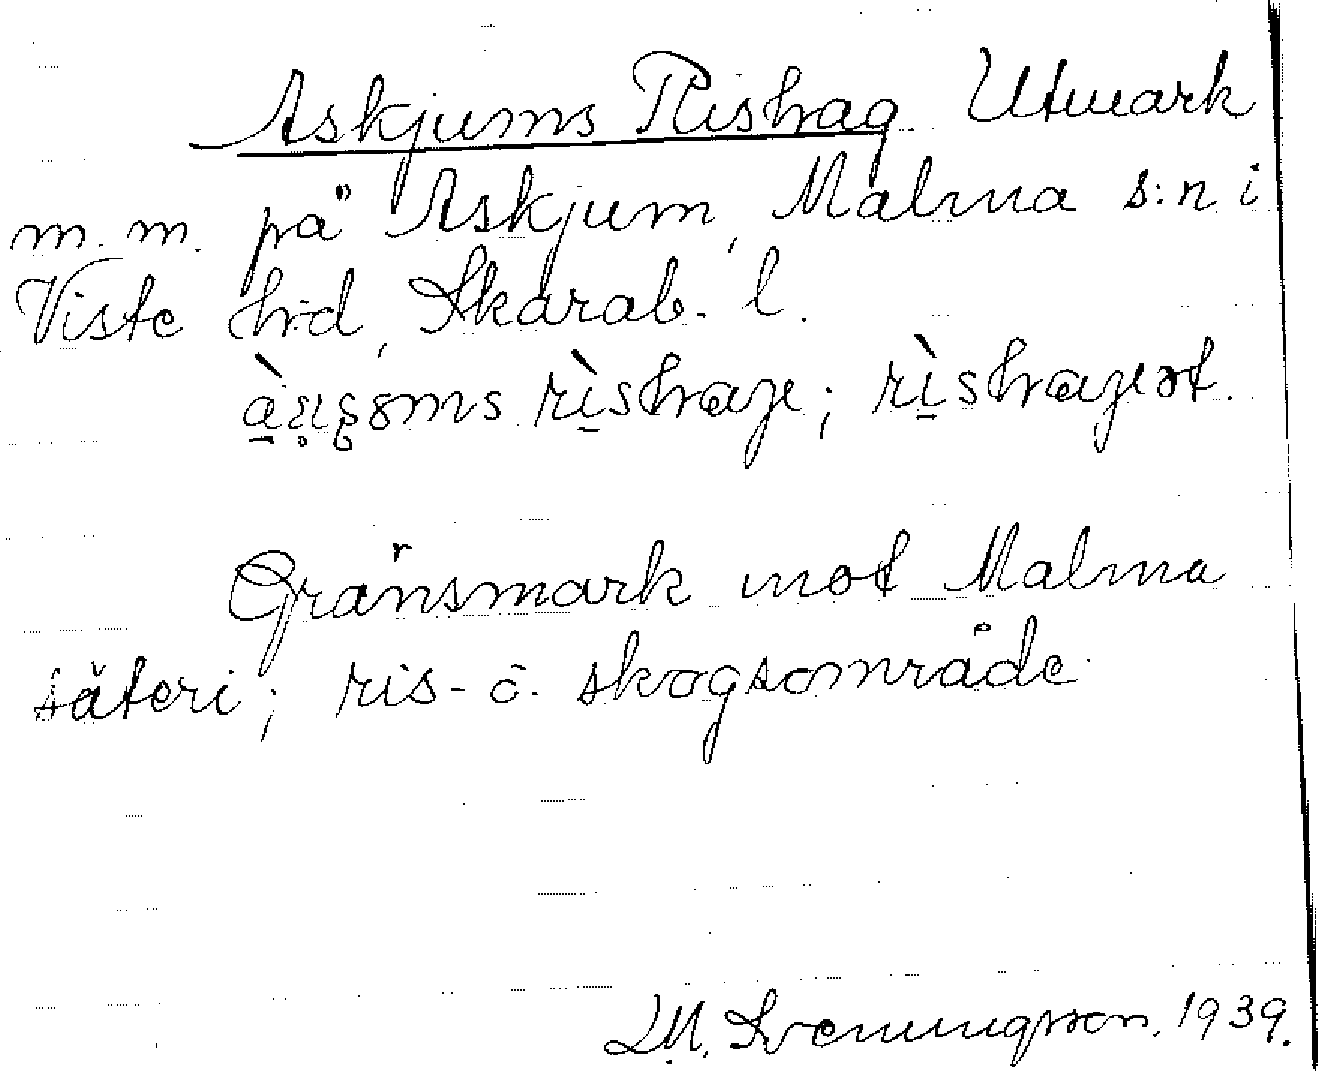 Askjums Rishag. Utmark
m. m. på Askjum, Malma s:n i
Viste h:d, Skarab. l.
rìshaγe;
Gränsmark mot Malma
säteri; ris- o. skogsområde.
Sveningsson. 1939.